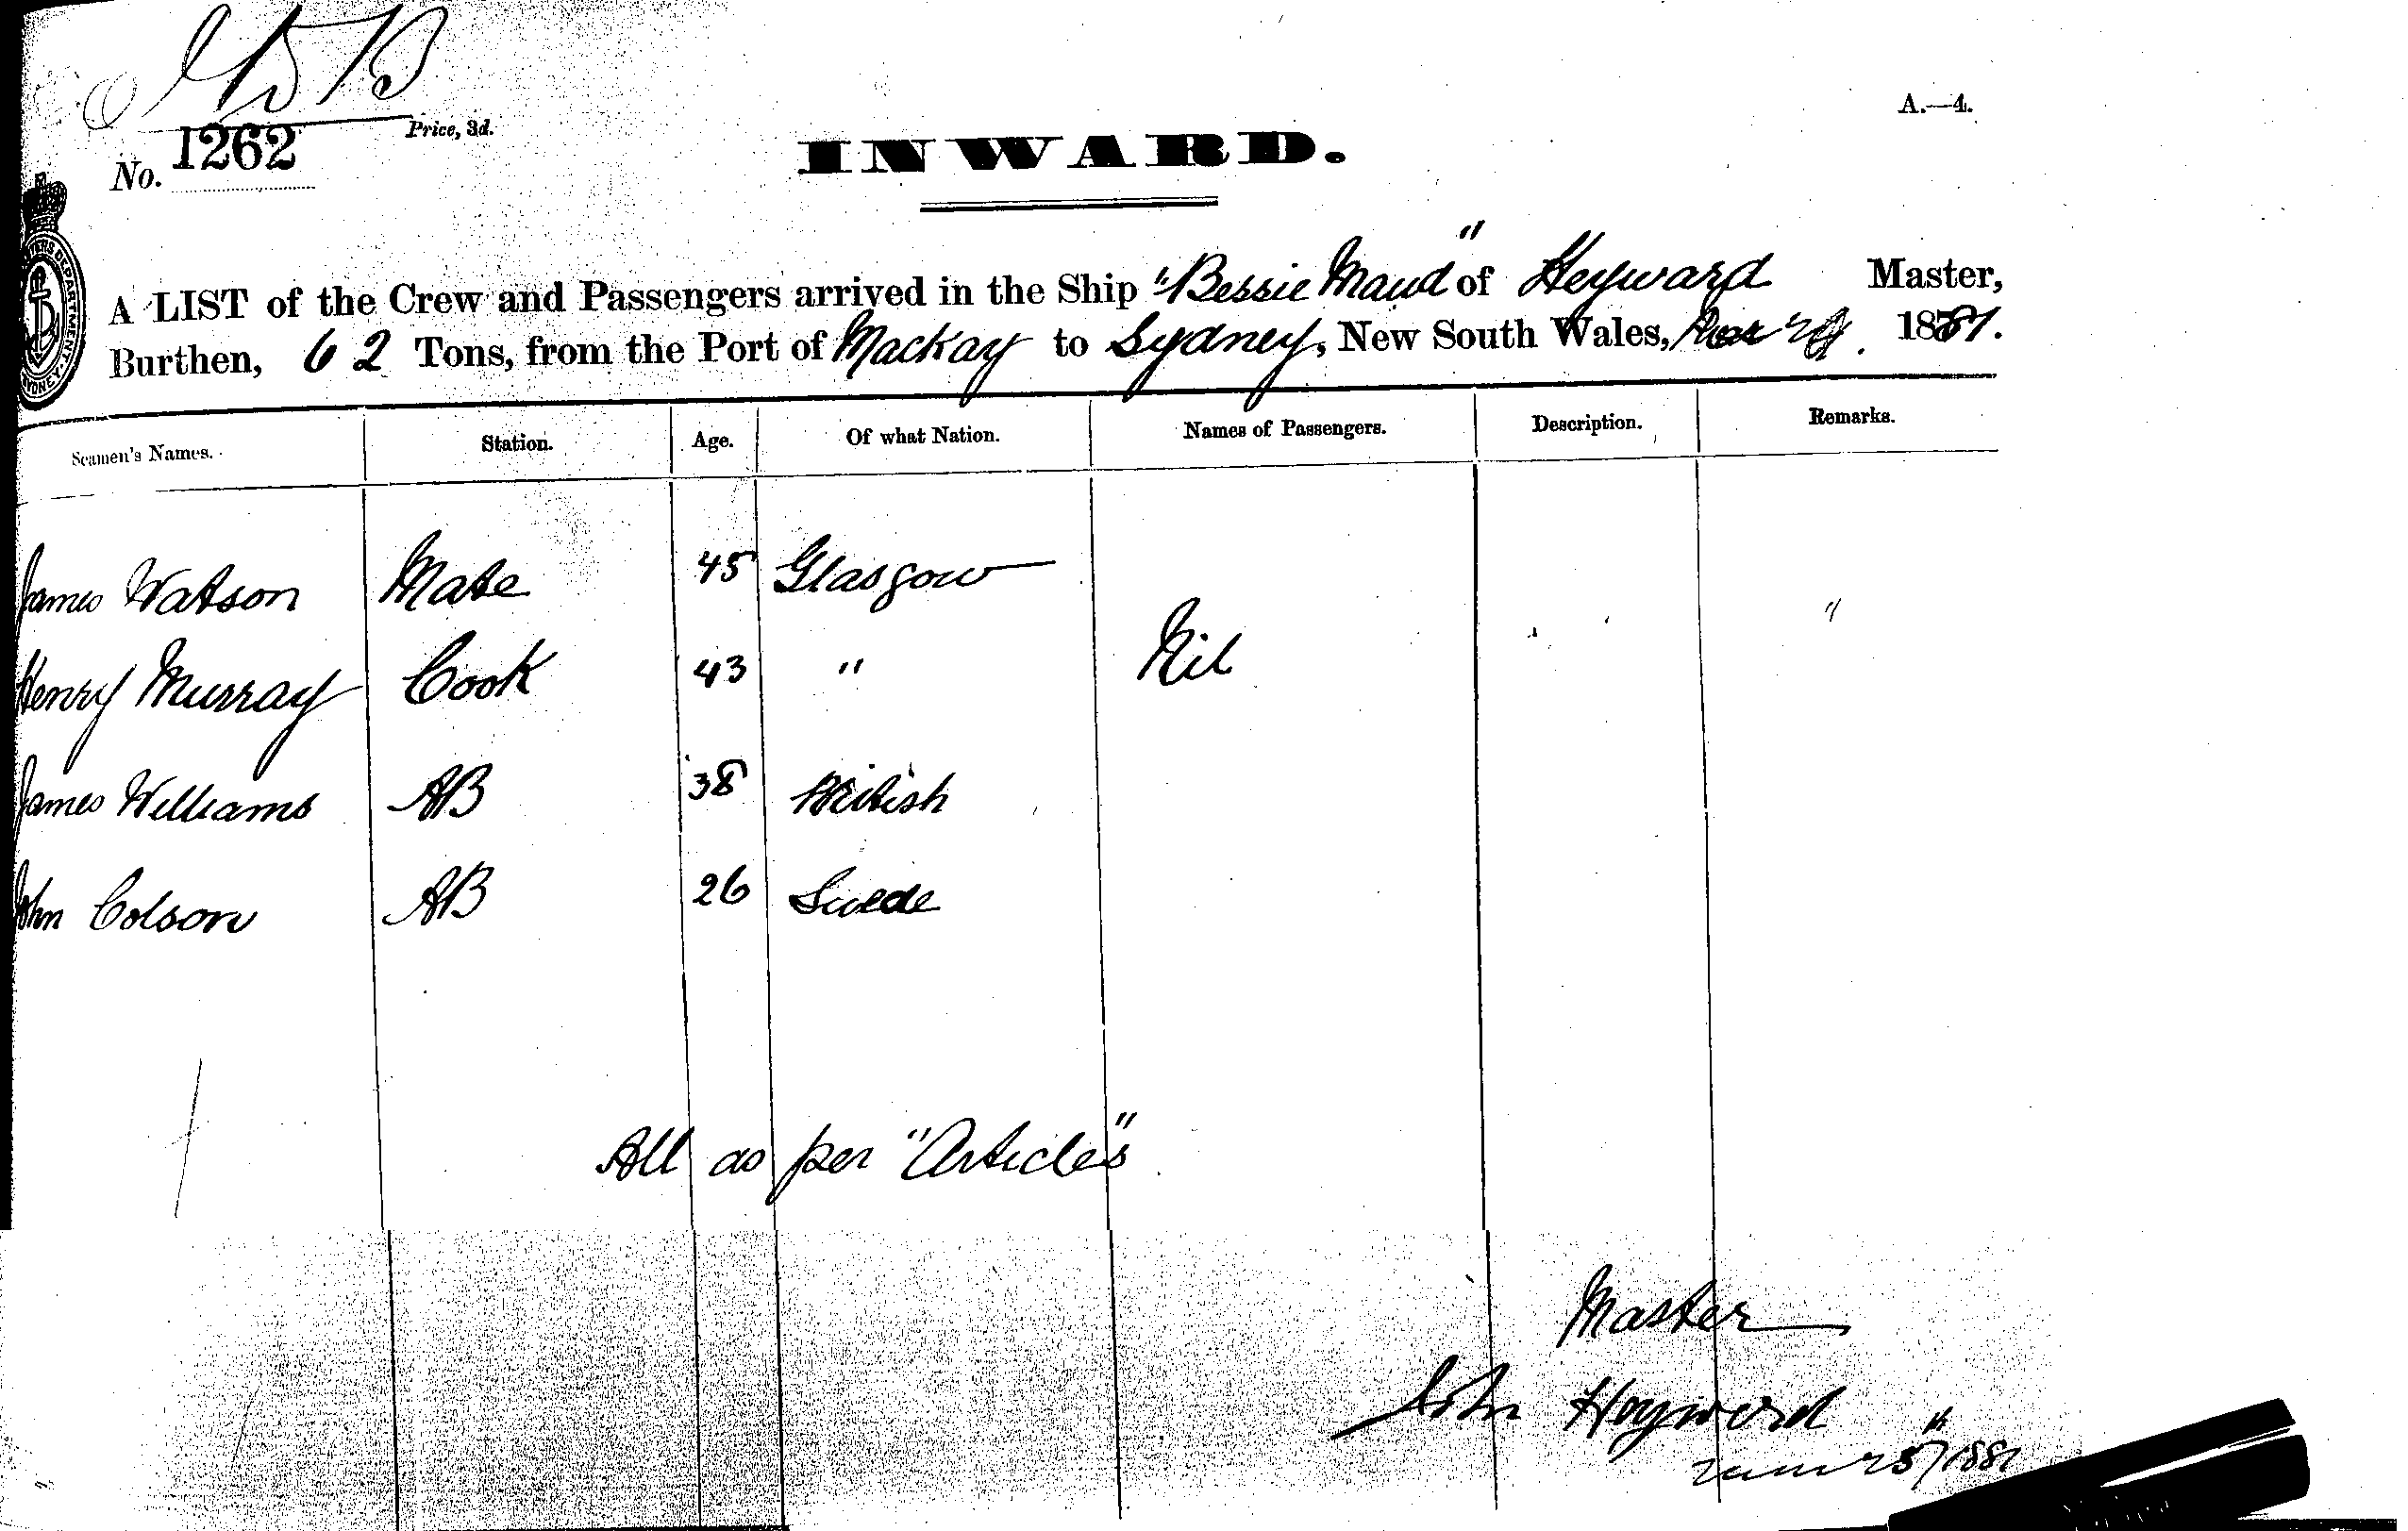 1262
Price, 3d.
No.
A.—4.
INWARD.
A LIST of the Crew and Passengers arrived in the Ship "Bessie Maud" of Heyward Master,
Burthen, 62 Tons, from the Port of Mackay to Sydney, New South Wales, 1881.
Seamen's Names. Station. Age. Of what Nation. Names of Passengers. Description. Remarks.
James Watson Mate 45 Glasgow
Henry Murray Cook 43 " Nil
James Williams AB 38 British
John Colson AB 26 Swede
All as per "Articles"
Master
John Heyward